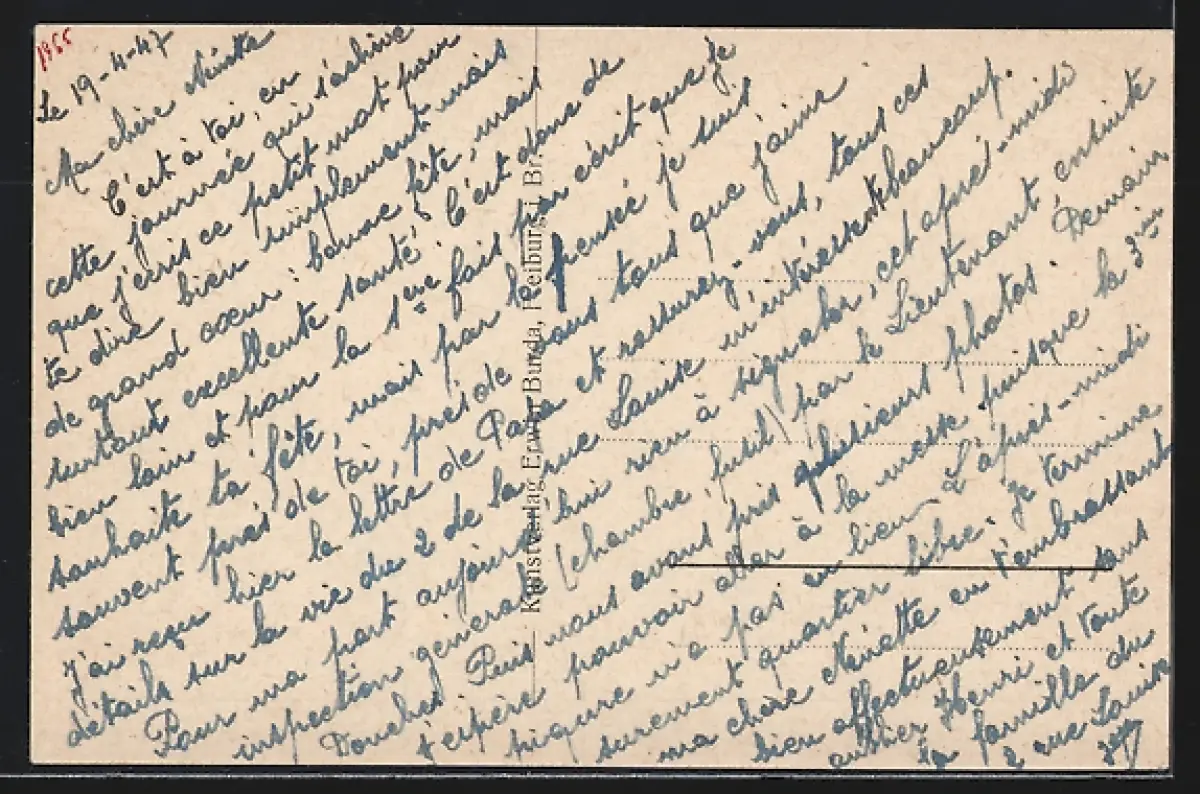 1955
Le 19-4-47
Ma chère Ninette
C'est à toi, en
cette journée qui s'achève
que j'écris ce petit mot pour
te dire bien simplement mais
de grand cœur : bonne fête, mais
surtout excellente santé. C'est donc de
bien loin et pour la 1ère fois par écrit que je
souhaite ta fête, mais par la pensée je suis
souvent près de toi, près de vous tous que j'aime
J'ai reçu hier la lettre de Papa et rassurez-vous, tous ces
détails sur la vie du 2 de la rue Louise m'intéressent beaucoup.
Pour ma part aujourd'hui rien à signaler, cet après-midi
inspection générale (chambre, fusil) par le Lieutenant, ensuite
Douches Puis nous avons pris plusieurs photos. Demain
j'espère pouvoir aller à la messe puisque la 3ème
piqure n'a pas eu lieu. L'après-midi
surement quartier libre. Je termine
ma chère Ninette en t'embrassant
bien affectueusement sans
oublier Henri et toute
la famille du
2 rue Louise
Kunstverlag Erwin Burda, Freiburg i. Br.